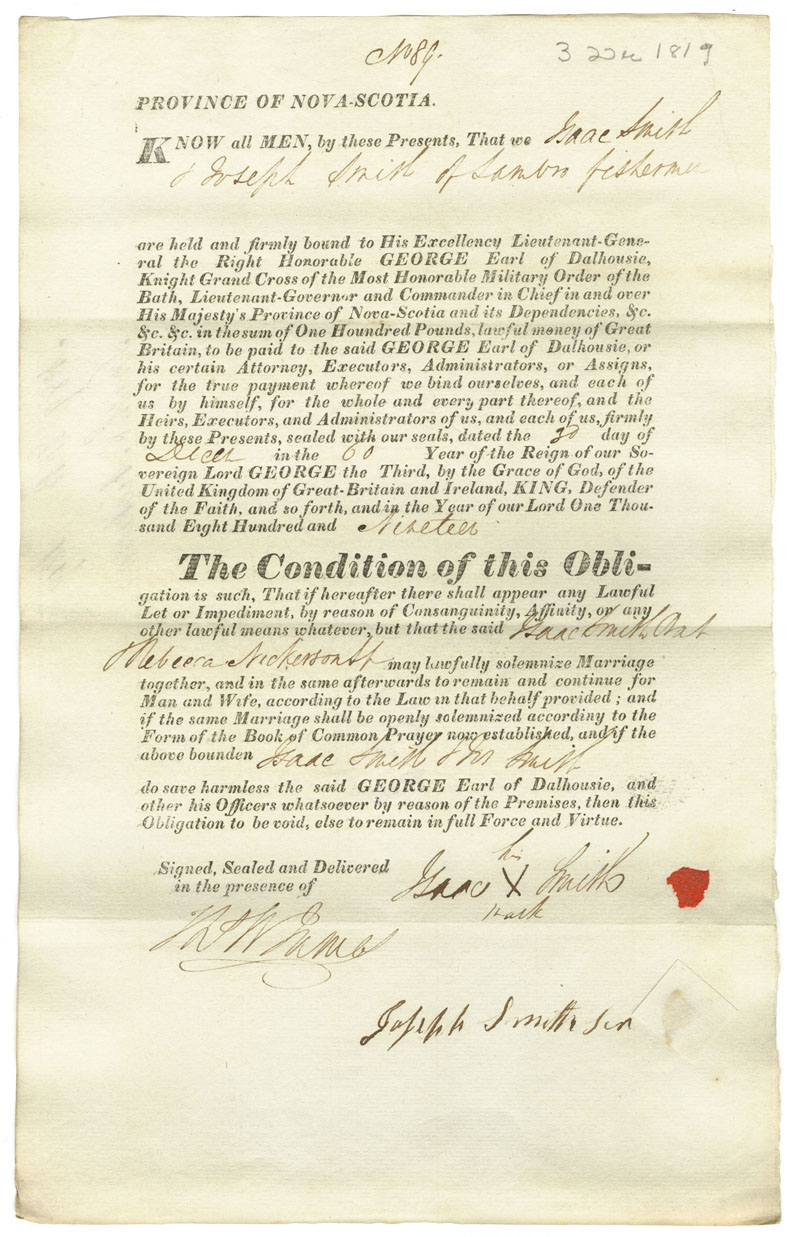 No 89.
3 Dec 1819
PROVINCE OF NOVA-SCOTIA.
KNOW all MEN, by these Presents, That we Isaac Smith
& Joseph Smith of Sambro fishermen
are held and firmly bound to His Excellency Lieutenant-Gene-
ral the Right Honorable GEORGE Earl of Dalhousie,
Knight Grand Cross of the Most Honorable Military Order of the
Bath, Lieutenant-Governor and Commander in Chief in and over
His Majesty's Province of Nova-Scotia and its Dependencies, &c.
&c. &c. in the sum of One Houndred Pounds, lawful money of Great
Britain, to be paid to the said GEORGE Earl of Dalhousie, or
his certain Attorney, Executors, Administrators, or Assigns,
for the true payment whereof we bind ourselves, and each of
us by himself, for the whole and every part thereof, and the
Heirs, Executors, and Administrators of us, and each of us, firmly
by these Presents, sealed with our seals, dated the 3d day of
Decer in the 60 Year of the Reign of our So-
vereign Lord GEORGE the Third, by the Grace of God, of the
United Kingdom of Great-Britain and Ireland, KING, Defender
of the Faith, and so forth, and in the Year of our Lord One Thou-
sand Eight Hundred and Nineteen
The Condition of this Obli-
gation is such, That if hereafter there shall appear any Lawful
Let or Impediment, by reason of Consanguinity, Affinity, or any
other lawful means whatever, but that the said Isaac Smith Bat
& Rebecca Nickerson Sp may lawfully solemnize Marriage
together, and in the same afterwards to remain and continue for
Man and Wife, according to the Law in that behalf provided; and
if the same Marriage shall be openly solemnized accordiny to the
Form of the Book of Common Prayer now established, and if the
above bounden Isaac Smith & Jos Smith
do save harmless the said GEORGE Earl of Dalhousie, and
other his Officers whatsoever by reason of the Premises, then this
Obligation to be void, else to remain in full Force and Virtue.
Signed, Sealed and Delivered
in the presence of
his
Isaac X Smith
mark
James
Joseph Smith Ser